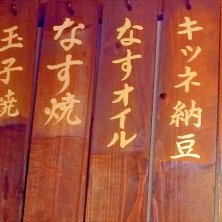 キツネ納豆
なすオイル
なす焼
玉子焼